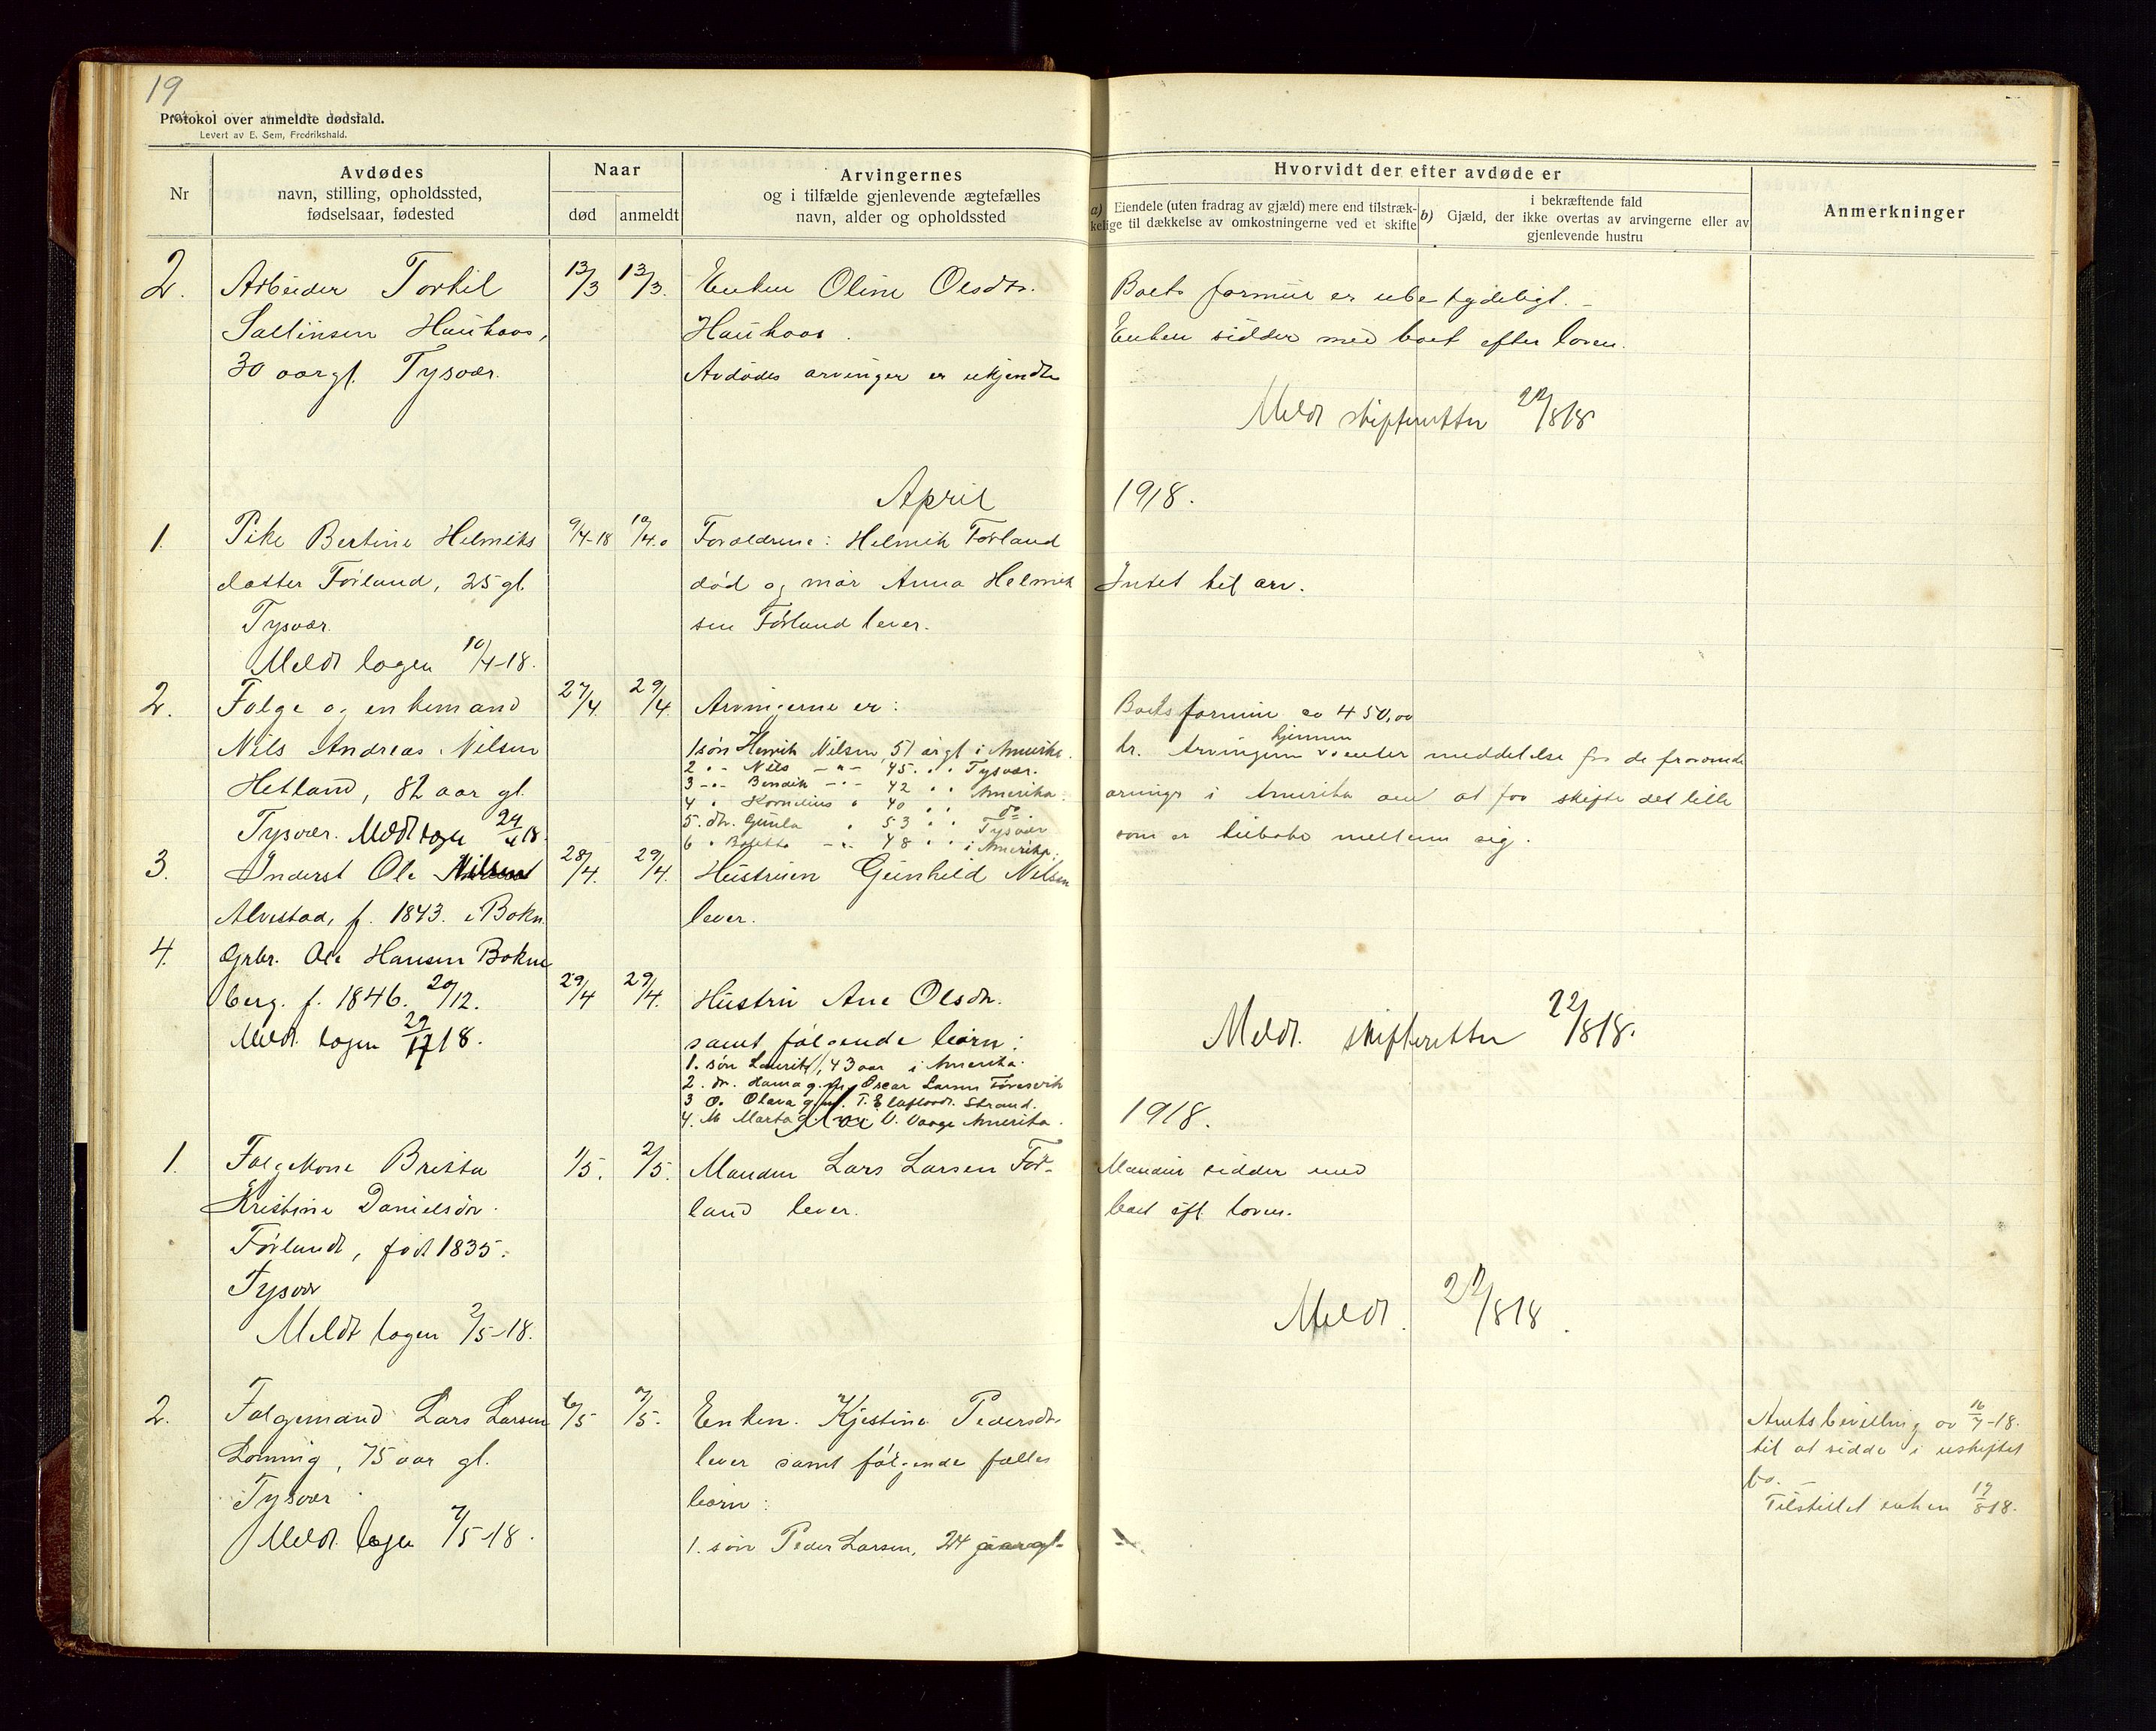 19
Protokol over anmeldte dødsfald.
Levert av E. Sem, Fredrikshald.
Nr
Avdødes
navn, stilling, opholdssted,
fødselsaar, fødested
Naar
død
anmeldt
Arvingernes
og i tilfælde gjenlevende ægtefælles
navn, alder og opholdssted
Hvorvidt der efter avdøde er
a) Eiendele (uten fradrag av gjæld) mere end tilstræk-
kelige til dækkelse av omkostningerne ved et skifte
b)
i bekræftende fald
Gjæld, der ikke overtas av arvingerne eller av
gjenlevende hustru
Anmerkninger
2. Arbeider Torkil
Hauhoos,
30 aar gl. Tysvær.
13/3 13/3.
Enken Oline Olsdtr.
Hauhoos.
Avdødes arvinger er ukjendte
Boets formue er ubetydeligt. –
Enken sidder med boet efter loven.
Meldt skifteretten 22/8 18
April 1918.
1. Pike Bertine Helmiks
datter Førland, 25 gl.
Tysvær.
Meldt logen 10/4-18.
9/4-18 10/4.
Forældrene: Helmik Førland
død og mor Anna Helmik
sen Førland lever.
Intet til arv.
2. Folge og enkemand
Nils Andreas Nilsen
Hetland, 82 aar gl.
Tysvær. Meldt logen 29/4 18.
27/4. 29/4.
Arvingerne er:
1 søn Henrik Nilsen 51 år gl i Amerika.
2 " - Nils - " - 45 " " Tysvær.
3 - " - Bendik - " - 42 " " Amerika.
4 " Kornelius " 40 " " do.
5. dtr. Gunla " 53 " " Tysvær
6 " - " - 48 " " i Amerika.
Boets formue er 450,00
kr. Arvingerne hjemme venter meddelelse fra de fraværende
arvinger i Amerika om at faa skifte det lille
som er tilbake mellem sig.
3. Inderst Ole Nilsen
Alvestad, f. 1843. i Bokn.
28/4. 29/4.
Hustruen Gunhild Nilsen
lever.
4. Grbr. Ole Hansen Bokne
berg. f. 1846. 20/12.
Meldt logen 29/4 18.
29/4 29/4.
Hustru Ane Olsdtr.
samt følgende børn:
1. søn Laurits, 43 aar i Amerika.
2. dtr. Hanna g. m. Oscar Larsen Førresvik
3 " Olava g. m. T. Strand.
4. " Marta g. V. Vaage Amerika.
Meldt. skifteretten 22/8 18.
1918.
1. Folgekone Britta
Kristine Danielsdtr.
Førland, født 1835.
Tysvær
Meldt logen 2/5-18.
1/5. 2/5.
Manden Lars Larsen Før-
land lever.
Manden sidder med
boet eft. loven.
Meldt. 22/8 18.
2. Folgemand Lars Larsen
Lonning, 75 aar gl.
Tysvær.
Meldt. logen 7/5-18.
6/5 7/5.
Enken. Kjestina Pedersdtr.
lever samt følgende fælles
børn:
1. søn Peder Larsen, 24 aar gl.
Amtsbevilling av 16/7-18.
til at sidde i uskiftet
bo. –
Tilstillet enken 19/8 18.